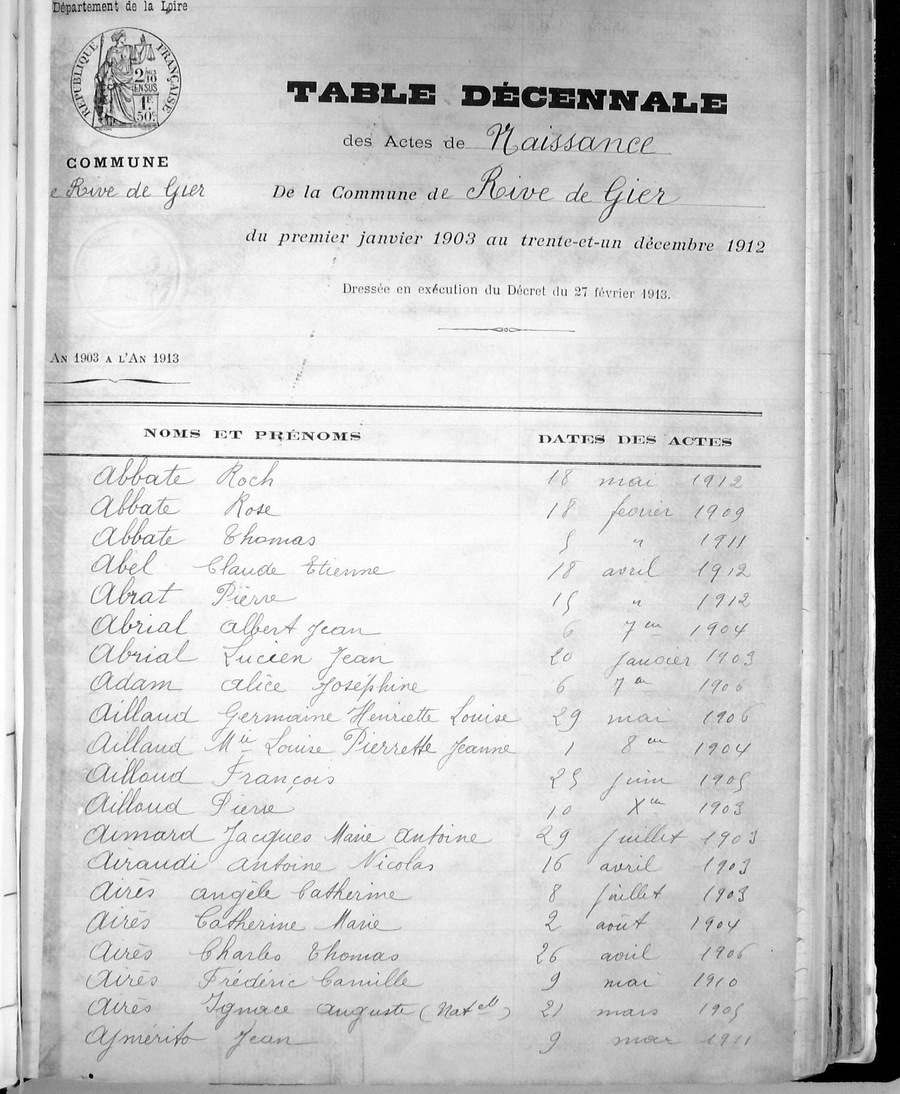 Département de la Loire
RÉPUBLIQUE FRANÇAISE
2/10
EN SUS
1F.
50c.
TABLE DÉCENNALE
des Actes de Naissance
COMMUNE
e Rive de Gier
De la Commune de Rive de Gier
du premier janvier 1903 au trente-et-un décembre 1912
Dressée en exécution du Décret du 27 février 1913.
AN 1903 A L'AN 1913
NOMS ET PRÉNOMS DATES DES ACTES
Abbate Roch 18 mai 1912
Abbate Rose 18 février 1909
Abbate Thomas 5 " 1911
Abel Claude Etienne 18 avril 1912
Abrat Pierre 15 " 1912
Abrial Albert Jean 6 7bre 1904
Abrial Lucien Jean 20 janvier 1903
Adam Alice Joséphine 6 7bre 1906
Aillaud Germaine Henriette Louise 29 mai 1906
Aillaud Mie Louise Pierrette Jeanne 1 8bre 1904
Ailloud François 25 juin 1905
Ailloud Pierre 10 Xbre 1903
Aimard Jacques Marie Antoine 29 juillet 1903
Airaudi Antoine Nicolas 16 avril 1903
Airès Angèle Catherine 8 juillet 1903
Airès Catherine Marie 2 août 1904
Airès Charles Thomas 26 avril 1906
Airès Frédéric Camille 9 mai 1910
Airès Ignace Auguste (Natelle) 21 mars 1905
Ajmérito Jean 9 mai 1911